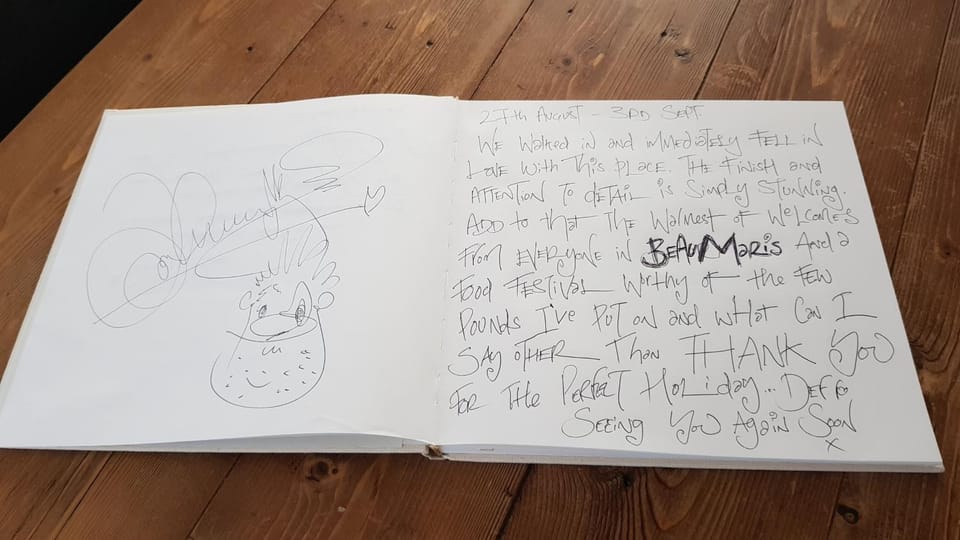 27th August - 3rd Sept.
We walked in and immediately fell in
love with this place. The finish and
attention to detail is simply stunning.
Add to that the warmest of welcomes
from everyone in BEAUMARIS and a
food festival worthy of the few
pounds I've put on and what can I
say other than THANK YOU
for the perfect holiday... Deffo
seeing you again soon
x